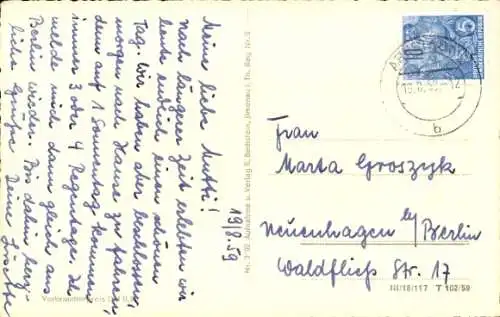 Meine liebe Mutti!
19.8.59
nach längerer Zeit erlebten wir
heute endlich einen schönen
Tag. Wir haben aber beschlossen,
morgen nach Hause zu fahren,
denn auf 1 Sonnentag kommen
immer 3 oder 4 Regentage. Ich
melde mich dann gleich aus
Berlin wieder. Bis dahin herz-
liche Grüße Deine
Verbraucherpreis DM
Nr. 3 92 Aufnahme u. Verlag E. Bechstein, Ilmenau i. Th. Reg. Nr. 9
Frau
Marta Groszyk
Neuenhagen b/Berlin
Waldfließ Str. 17
III/18/117 T 102/59
b